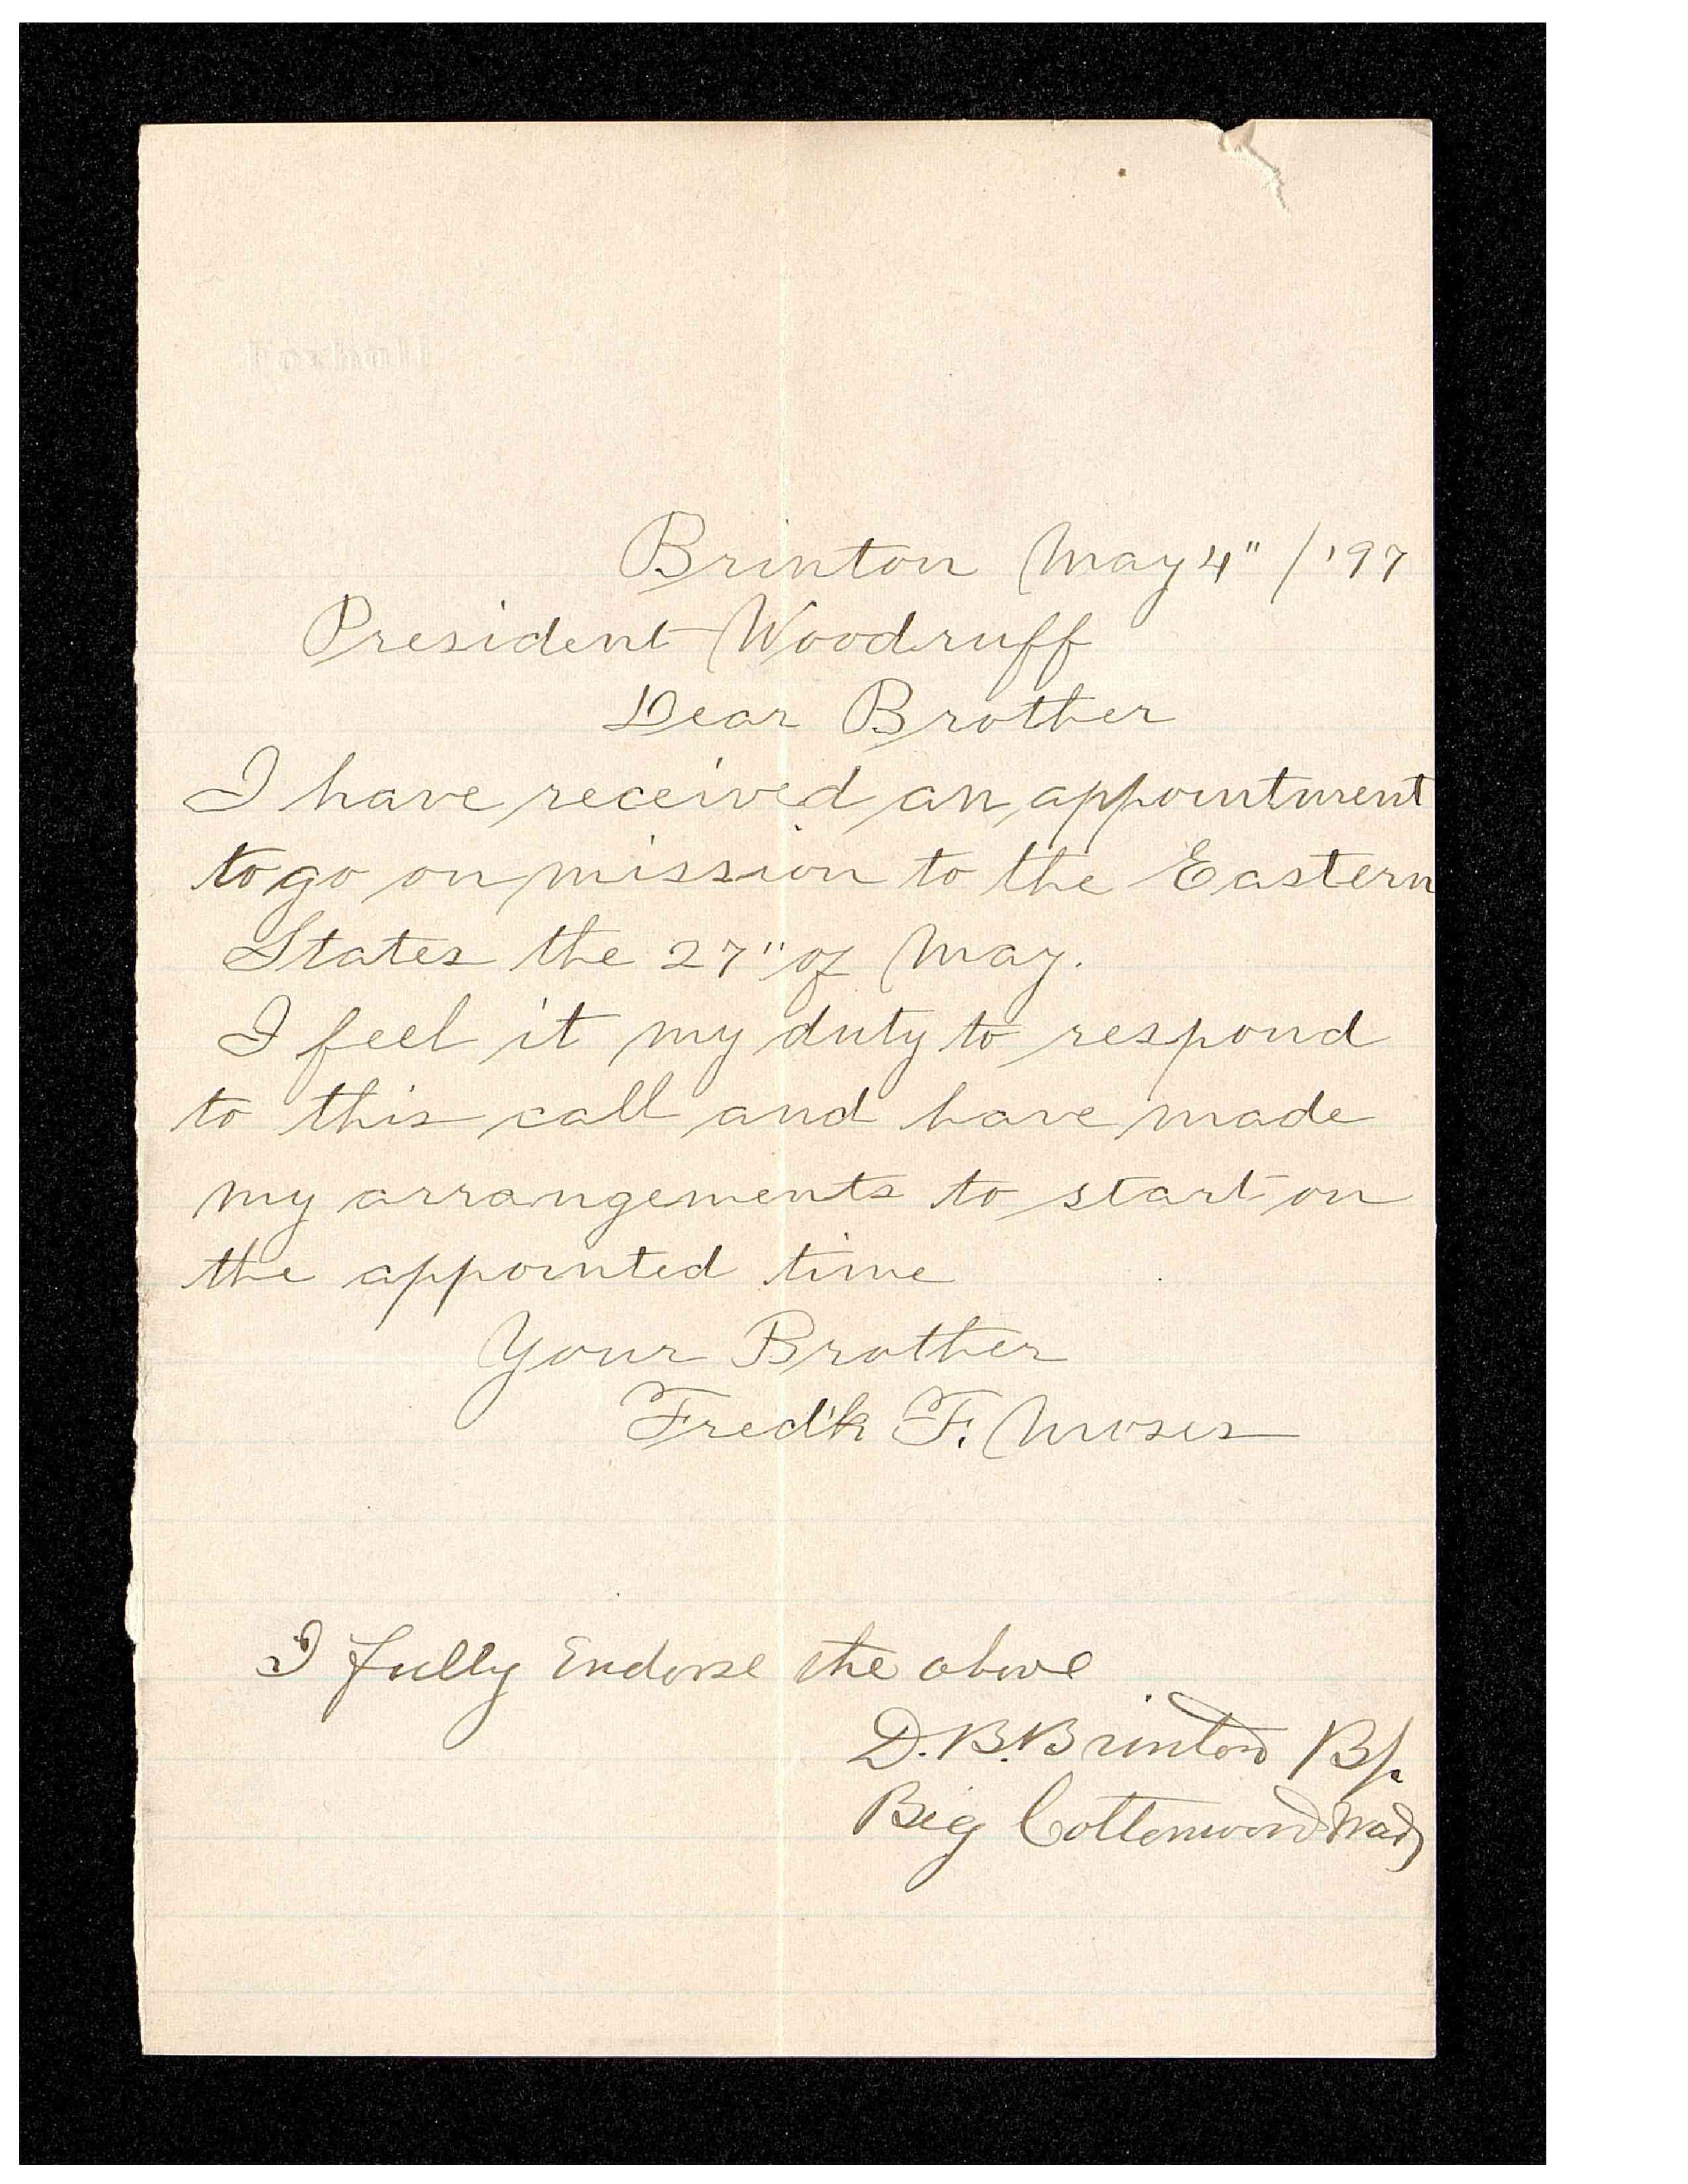 Brinton May 4" /'97
President Woodruff
Dear Brother
I have received an appointment
to go on mission to the Eastern
States the 27" of May.
I feel it my duty to respond
to this call and have made
my arrangements to start on
the appointed time
Your Brother
Fred'k F. Moses
I fully Endorse the above
D. B. Brinton Bp.
Big Cottonwood Ward